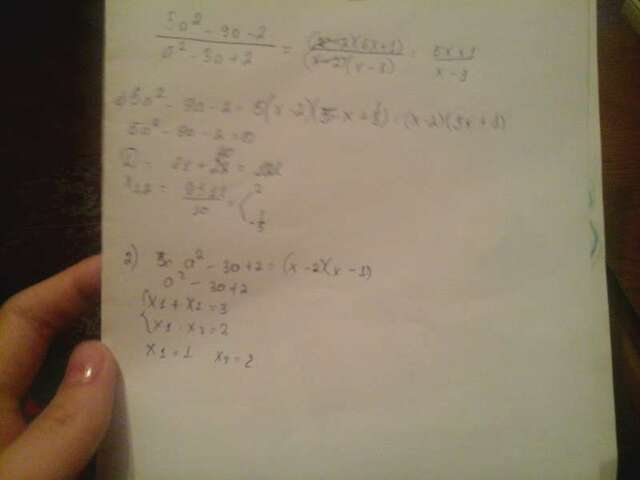 5a² - 9a - 2 / a² - 3a + 2 = (x-2)(5x+1) / (x-2)(x-3) = 5x+1 / x-3
5a² - 9a - 2 = 5(x-2)(x+1/5) = (x-2)(5x+1)
5a² - 9a - 2 = 0
x₁,₂ = 9± / 10 = 2
-1/5
2) a² - 3a + 2 = (x-2)(x-1)
a² - 3a + 2
x1 + x2 = 3
x1 · x2 = 2
x1 = 1 x2 = 2